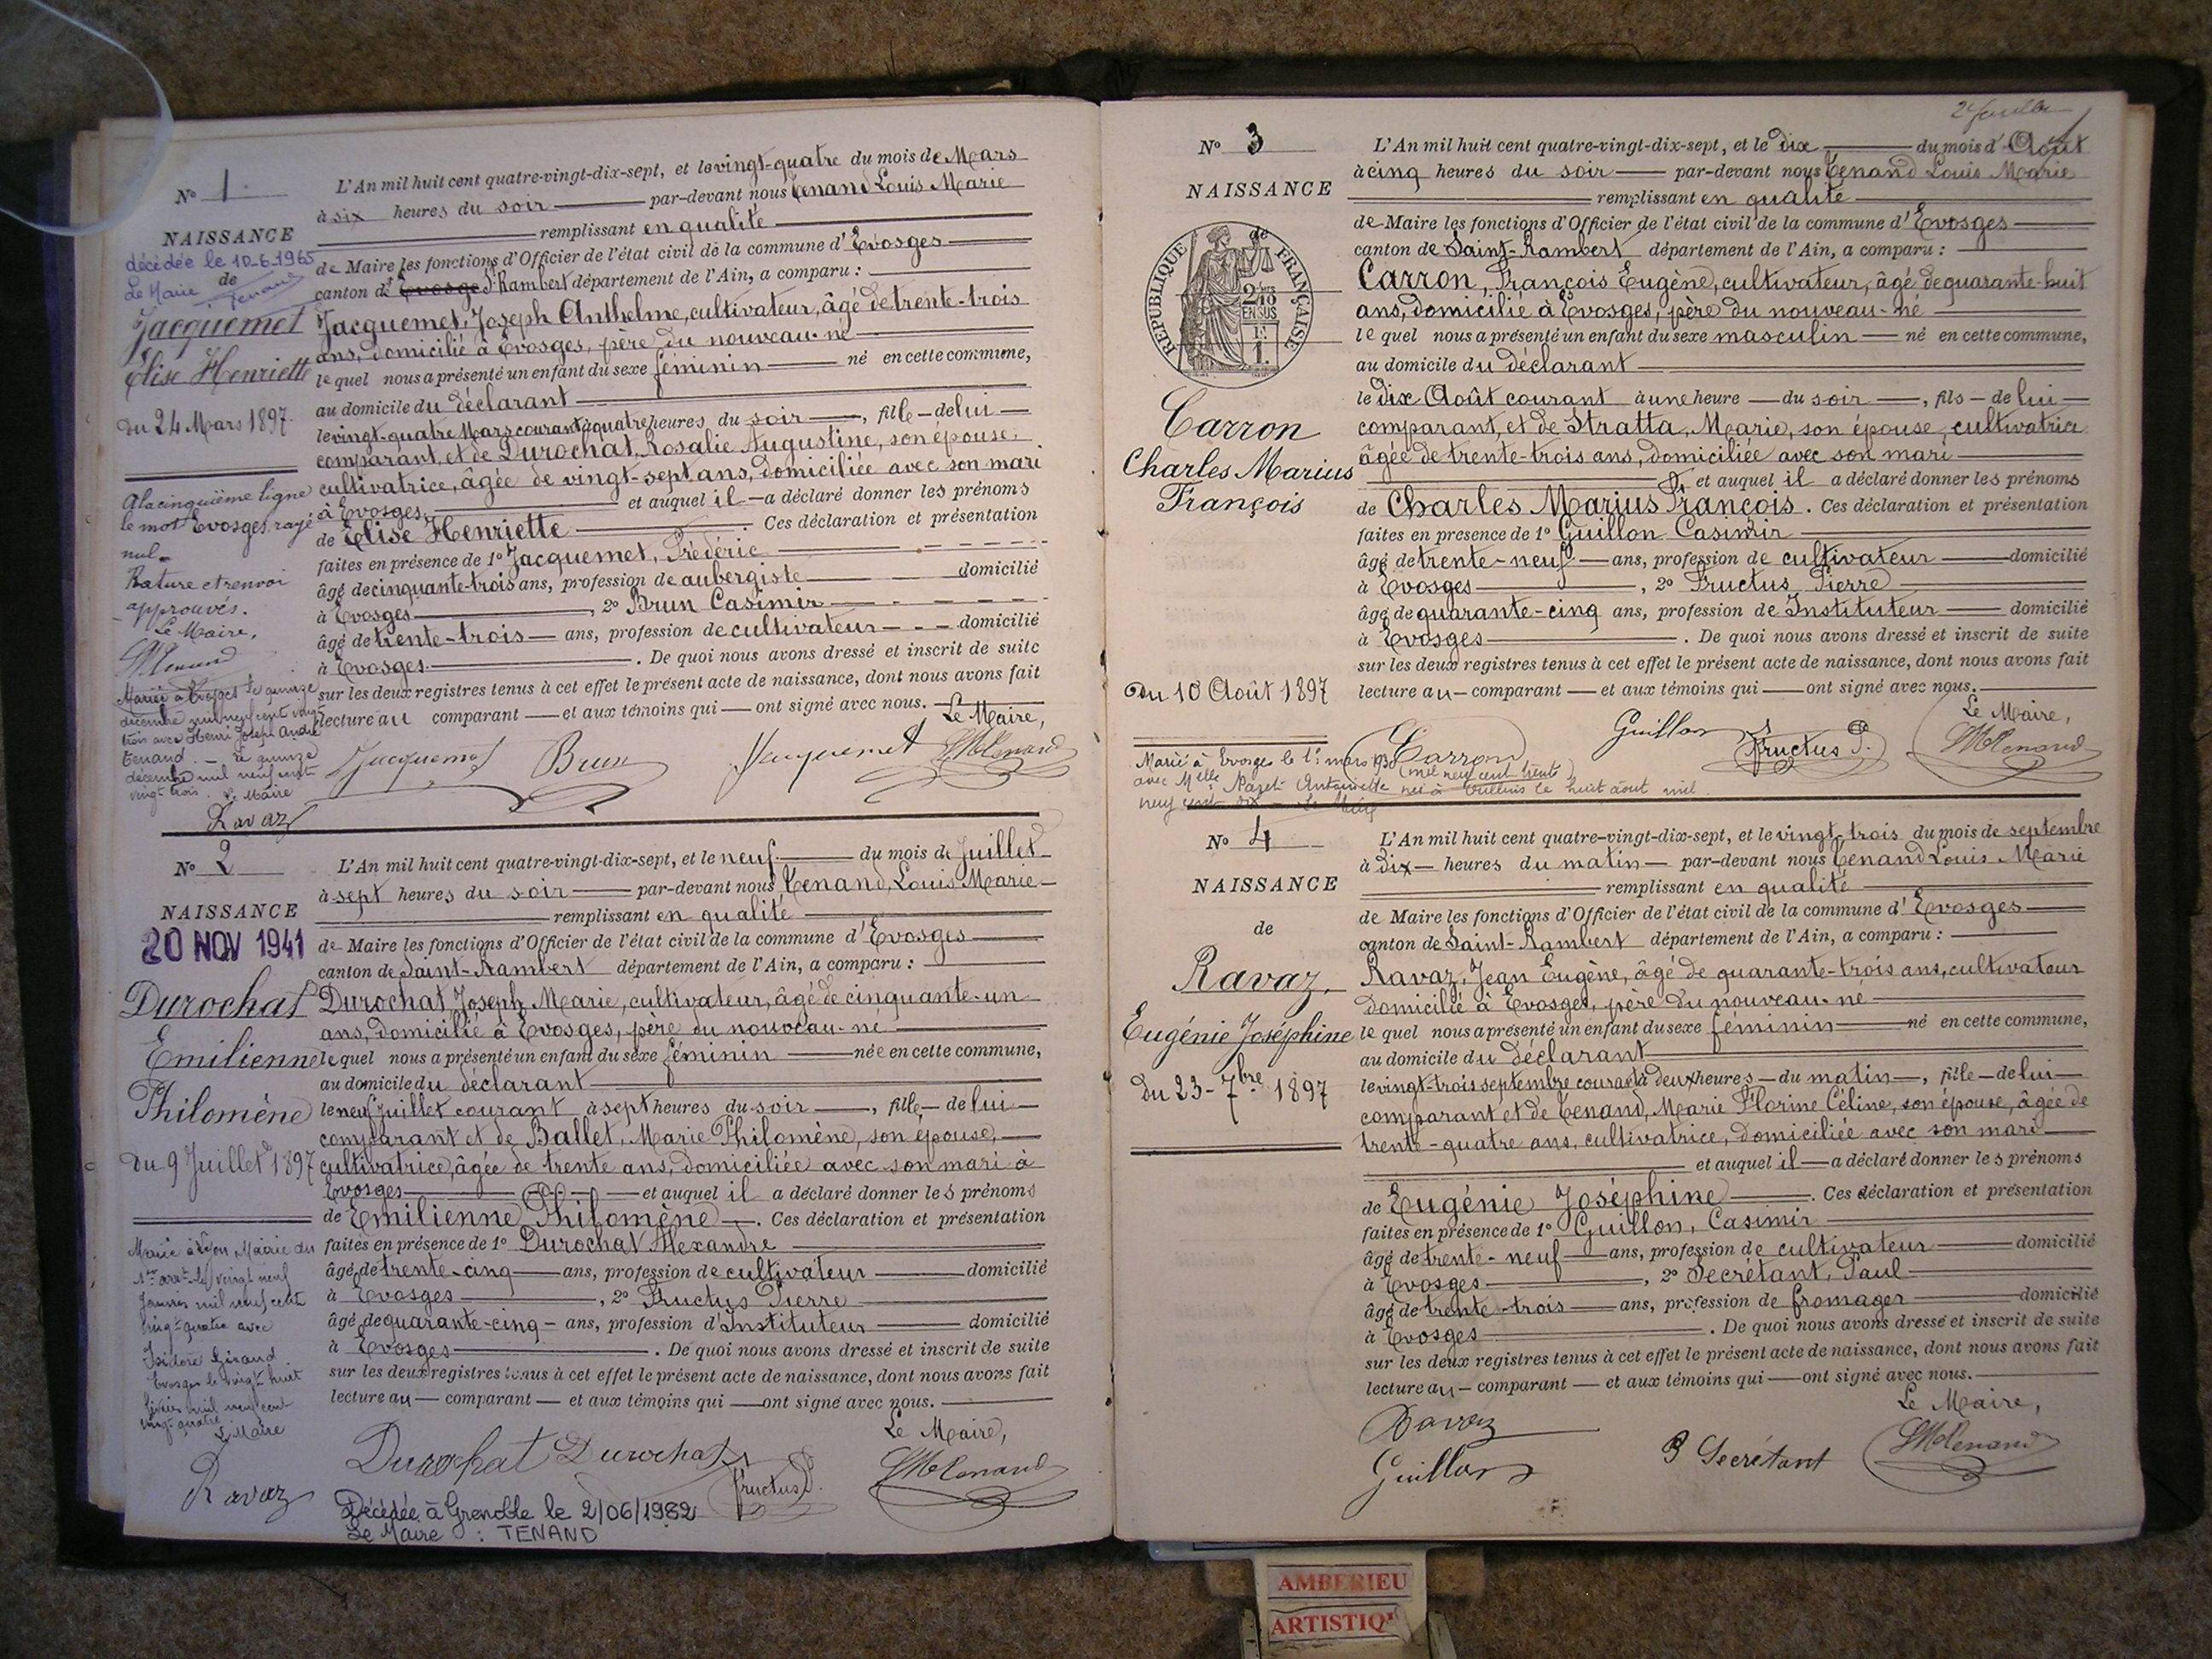 N° 1
NAISSANCE
décédée le 10-6-1965
Le Maire de
Tenand
Jacquemet
Elise Henriette
Du 24 Mars 1897.
A la cinquième ligne
le mot Evosges rayé
nul.
Rature et renvoi
approuvés.
Le Maire,
Mariée à Evosges le quinze
décembre mil neuf cent vingt
trois avec Henri Joseph André
Tenand. – Le quinze
décembre mil neuf cent
vingt trois. Le Maire
Ravaz
L'An mil huit cent quatre-vingt-dix-sept, et le vingt-quatre du mois de Mars
à six heures du soir par-devant nous Tenand Louis Marie
remplissant en qualité
de Maire les fonctions d'Officier de l'état civil de la commune d'Evosges
canton de Evosges St Rambert département de l'Ain, a comparu :
Jacquemet, Joseph Anthelme, cultivateur, âgé de trente-trois
ans, domicilié à Evosges, père du nouveau-né
lequel nous a présenté un enfant du sexe féminin né en cette commune,
au domicile du déclarant
le vingt-quatre Mars courant à quatre heures du soir, fille de lui
comparant, et de Durochat, Rosalie Augustine, son épouse,
cultivatrice, âgée de vingt-sept ans, domiciliée avec son mari
à Evosges et auquel il a déclaré donner les prénoms
de Elise Henriette. Ces déclaration et présentation
faites en présence de 1° Jacquemet, Frédéric
âgé de cinquante-trois ans, profession de aubergiste domicilié
à Evosges, 2° Brun Casimir
âgé de trente-trois ans, profession de cultivateur domicilié
à Evosges. De quoi nous avons dressé et inscrit de suite
sur les deux registres tenus à cet effet le présent acte de naissance, dont nous avons fait
lecture au comparant et aux témoins qui ont signé avec nous.
Le Maire,
Jacquemet Brun Jacquemet LMTenand
N° 2
NAISSANCE
20 NOV 1941
Durochat
Emilienne
Philomène
Du 9 Juillet 1897
Mariée à Lyon, Mairie du
1er arrt le vingt neuf
Janvier mil neuf cent
vingt-quatre avec
Isidore Giraud
Evosges le vingt huit
février mil neuf cent
vingt-quatre
Le Maire
Ravaz
L'An mil huit cent quatre-vingt-dix-sept, et le neuf du mois de Juillet
à sept heures du soir par-devant nous Tenand, Louis Marie
remplissant en qualité
de Maire les fonctions d'Officier de l'état civil de la commune d'Evosges
canton de Saint-Rambert département de l'Ain, a comparu :
Durochat, Joseph Marie, cultivateur, âgé de cinquante-un
ans, domicilié à Evosges, père du nouveau-né
lequel nous a présenté un enfant du sexe féminin née en cette commune,
au domicile du déclarant
le neuf Juillet courant à sept heures du soir, fille de lui
comparant et de Ballet, Marie Philomène, son épouse,
cultivatrice, âgée de trente ans, domiciliée avec son mari à
Evosges et auquel il a déclaré donner les prénoms
de Emilienne Philomène. Ces déclaration et présentation
faites en présence de 1° Durochat Alexandre
âgé de trente-cinq ans, profession de cultivateur domicilié
à Evosges, 2° Fructus Pierre
âgé de quarante-cinq ans, profession d'Instituteur domicilié
à Evosges. De quoi nous avons dressé et inscrit de suite
sur les deux registres tenus à cet effet le présent acte de naissance, dont nous avons fait
lecture au comparant et aux témoins qui ont signé avec nous.
Le Maire,
Durochat Durochat Fructus P. LMTenand
Décédée à Grenoble le 2/06/1982
Le Maire : TENAND
N° 3
NAISSANCE
de
REPUBLIQUE FRANÇAISE
2/10
EN SUS
Carron
Charles Marius
François
Du 10 Août 1897
2e feuillet
L'An mil huit cent quatre-vingt-dix-sept, et le dix du mois d'Août
à cinq heures du soir par-devant nous Tenand Louis Marie
remplissant en qualité
de Maire les fonctions d'Officier de l'état civil de la commune d'Evosges
canton de Saint-Rambert département de l'Ain, a comparu :
Carron, François Eugène, cultivateur, âgé de quarante-huit
ans, domicilié à Evosges, père du nouveau-né
lequel nous a présenté un enfant du sexe masculin né en cette commune,
au domicile du déclarant
le dix Août courant à une heure du soir, fils de lui
comparant, et de Stratta, Marie, son épouse, cultivatrice
âgée de trente-trois ans, domiciliée avec son mari
et auquel il a déclaré donner les prénoms
de Charles Marius François. Ces déclaration et présentation
faites en présence de 1° Guillon Casimir
âgé de trente-neuf ans, profession de cultivateur domicilié
à Evosges, 2° Fructus Pierre
âgé de quarante-cinq ans, profession de Instituteur domicilié
à Evosges. De quoi nous avons dressé et inscrit de suite
sur les deux registres tenus à cet effet le présent acte de naissance, dont nous avons fait
lecture au comparant et aux témoins qui ont signé avec nous.
Le Maire,
Carron Guillon Fructus P. LMTenand
Marié à Evosges le 1er mars 1930 (mil neuf cent trente)
avec Melle Antoinette née à le huit août mil
neuf cent six – Le Maire
N° 4
NAISSANCE
de
Ravaz,
Eugénie Joséphine
Du 23-7bre 1897
L'An mil huit cent quatre-vingt-dix-sept, et le vingt-trois du mois de septembre
à dix heures du matin par-devant nous Tenand Louis Marie
remplissant en qualité
de Maire les fonctions d'Officier de l'état civil de la commune d'Evosges
canton de Saint-Rambert département de l'Ain, a comparu :
Ravaz, Jean Eugène, âgé de quarante-trois ans, cultivateur
domicilié à Evosges, père du nouveau-né
lequel nous a présenté un enfant du sexe féminin né en cette commune,
au domicile du déclarant
le vingt-trois septembre courant à deux heures du matin, fille de lui
comparant et de Tenand, Marie Florine Céline, son épouse, âgée de
trente-quatre ans, cultivatrice, domiciliée avec son mari
et auquel il a déclaré donner les prénoms
de Eugénie Joséphine. Ces déclaration et présentation
faites en présence de 1° Guillon, Casimir
âgé de trente-neuf ans, profession de cultivateur domicilié
à Evosges, 2° Secrétant, Paul
âgé de trente-trois ans, profession de fromager domicilié
à Evosges. De quoi nous avons dressé et inscrit de suite
sur les deux registres tenus à cet effet le présent acte de naissance, dont nous avons fait
lecture au comparant et aux témoins qui ont signé avec nous.
Le Maire,
Ravaz
Guillon P Secrétant LMTenand
AMBERIEU
ARTISTIQ